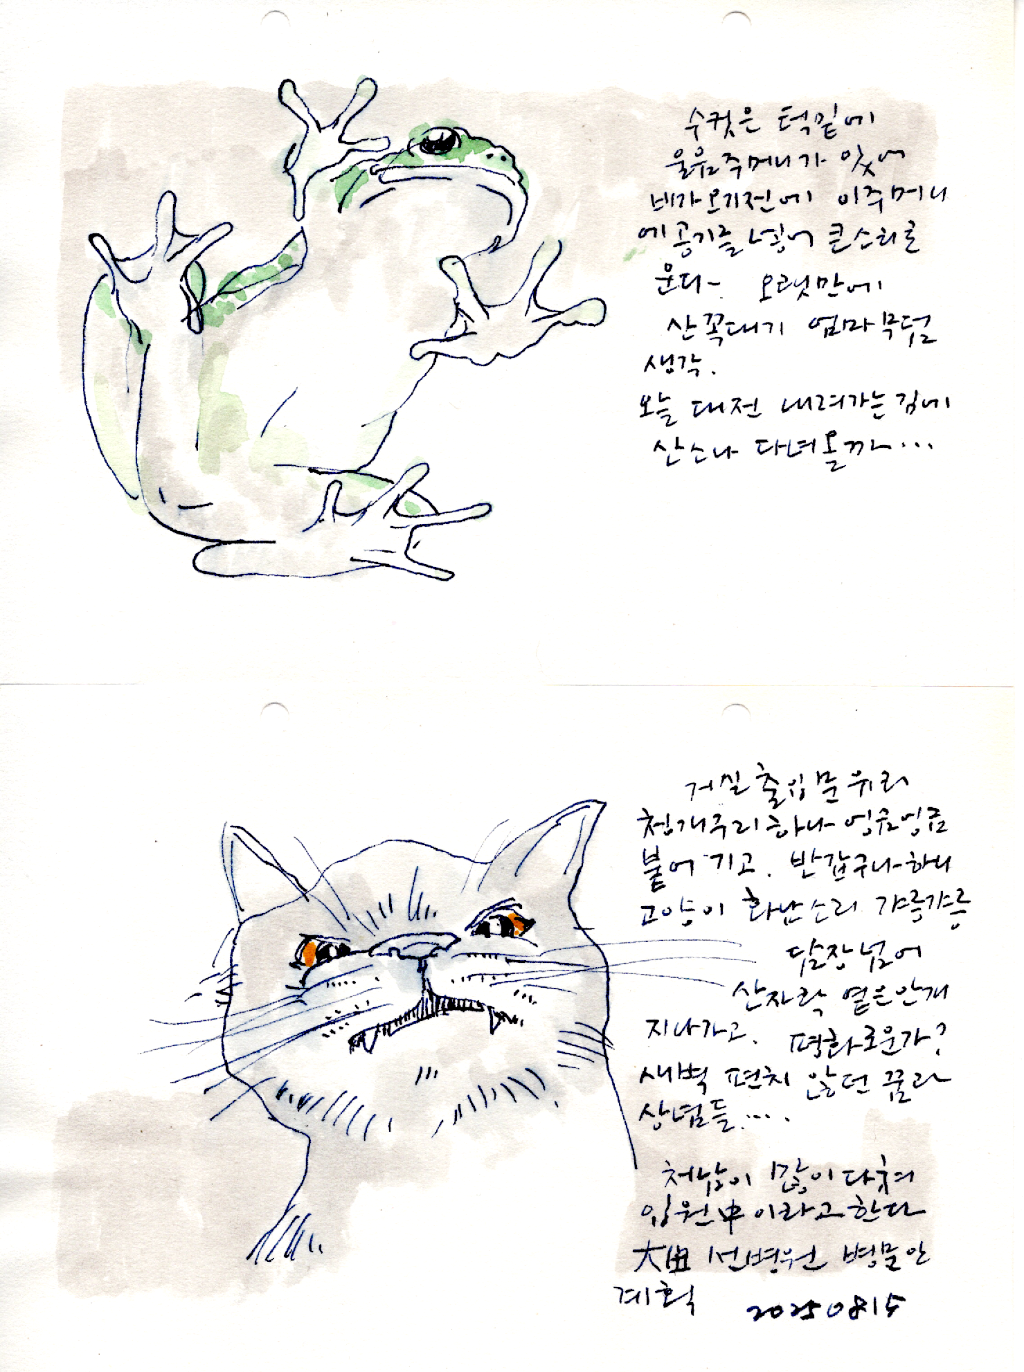 수컷은 턱밑에
울음주머니가 있어
비가오기전에 이주머니
에 공기를 넣어 큰소리로
운다. 오랫만에
산꼭대기 엄마무덤
생각.
오늘 대전 내려가는 길에
산소나 다녀올까...
거실출입문 위로
청개구리 하나 엉금엉금
붙어 기고. 반갑구나 하니
고양이 화난소리 갸릉갸릉
담장넘어
산자락 옅은안개
지나가고. 평화로운가?
새벽 편치 않던 꿈과
상념들....
처남이 많이 다쳐
입원中이라고 한다
大田 선병원 병문안
계획 20250815